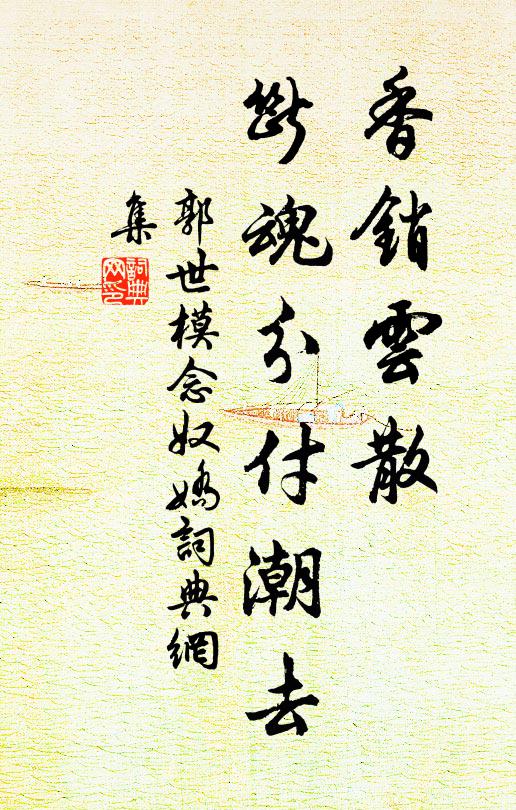 香銷雲散
斷魂分付潮去
郭世模念奴嬌詞典網
集
詞典網印